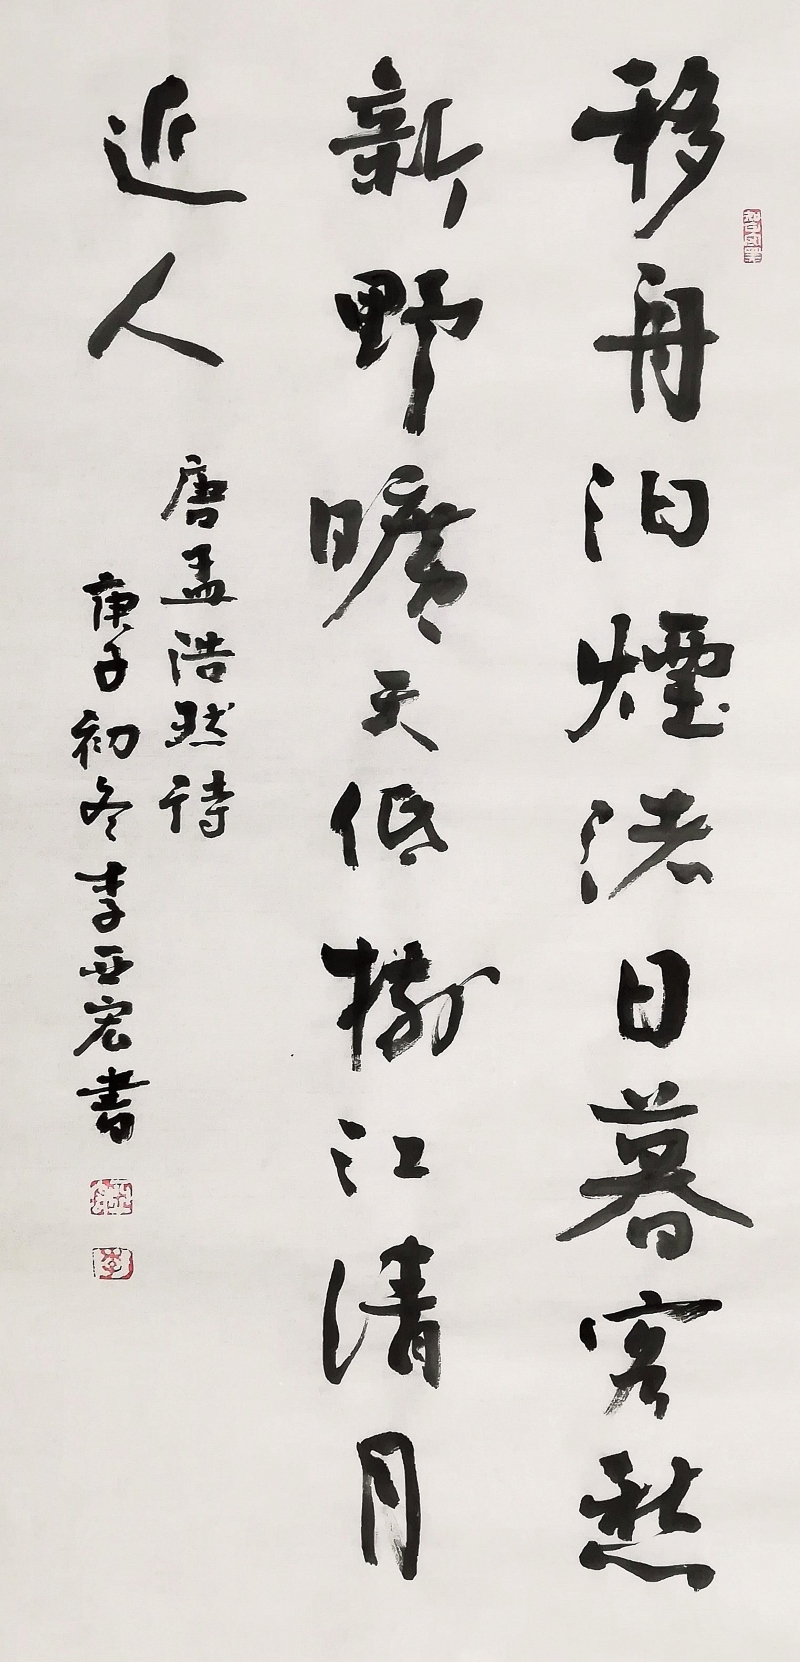 移舟泊煙渚日暮客愁
新野曠天低樹江清月
近人
唐孟浩然诗
庚子初冬李亚宏書
李